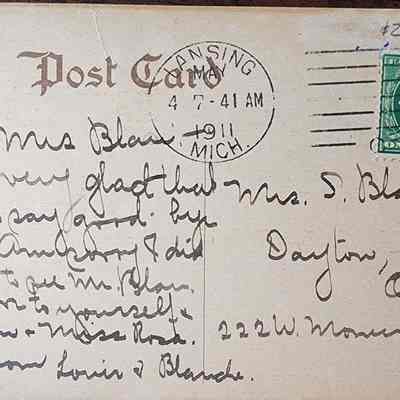 Post Card
LANSING
MAY
4 7-41 AM
1911
MICH.
Mrs Blau
very glad that
say good-bye
Am sorry I did
to see Mr. Blau.
to yourself &
& Miss Rosa.
Louis & Blanche.
Mrs. S. Bla
Dayton,
O
222 W. Monum